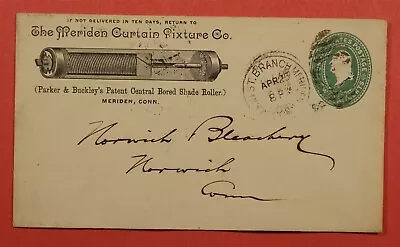 IF NOT DELIVERED IN TEN DAYS, RETURN TO
The Meriden Curtain Fixture Co.
(Parker & Buckley's Patent Central Bored Shade Roller.)
MERIDEN, CONN.
T. BRANCH
APR 25
Norwich Bleachery
Norwich
Conn